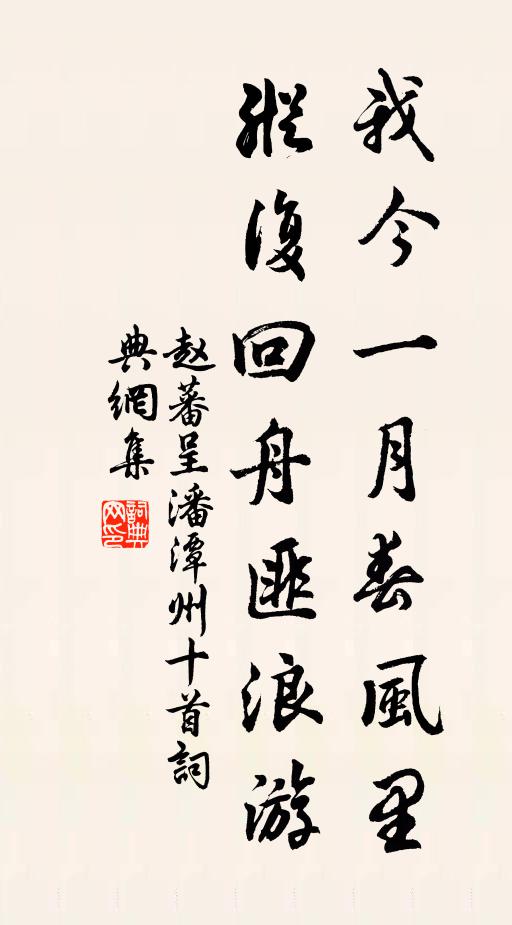 我今一月春風里
縱復回舟匪浪游
赵蕃呈潘潭州十首詞
典網集
詞典网印